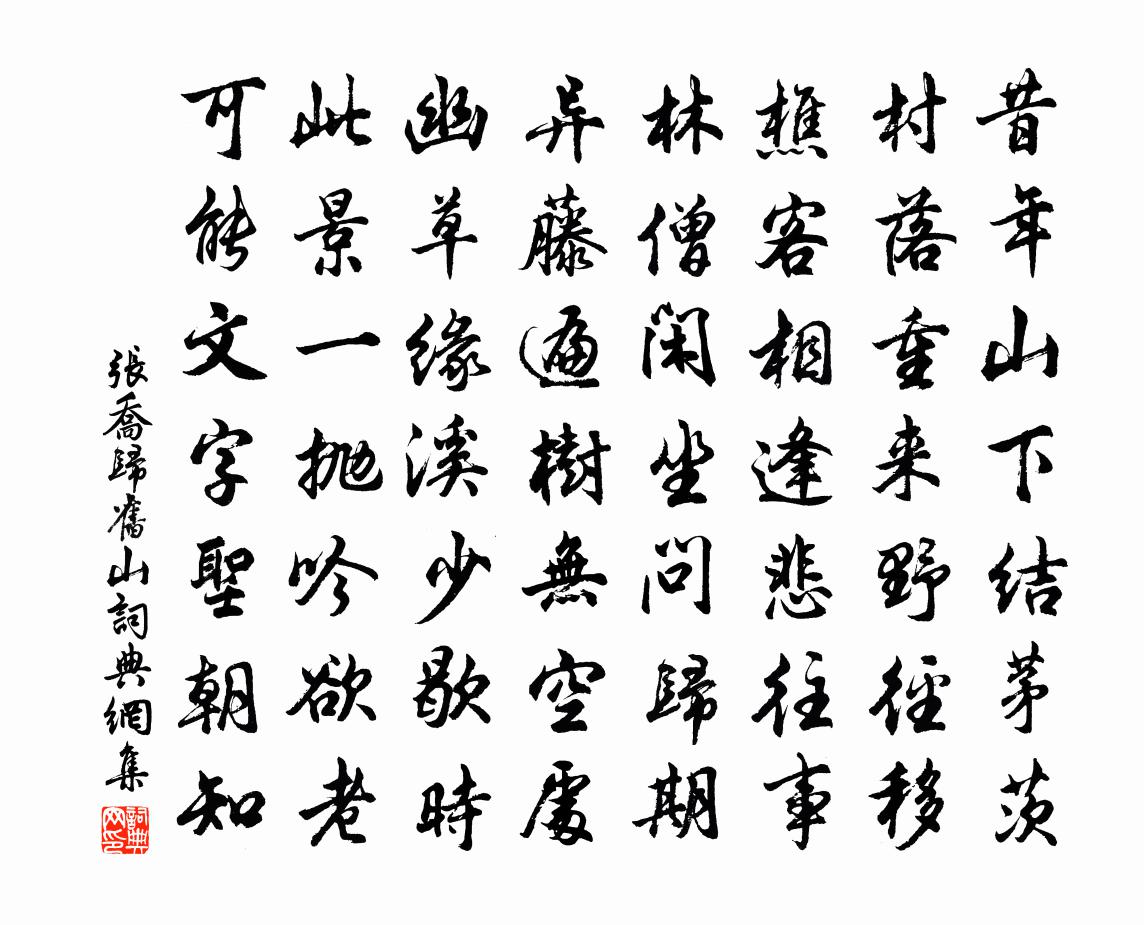 昔年山下结茅茨
村落重来野径移
樵客相逢悲往事
林僧闲坐问归期
异藤遍树無空處
幽草缘溪少歇時
此景一抛吟欲老
可能文字聖朝知
張喬歸舊山詞典網集
詞典
网印